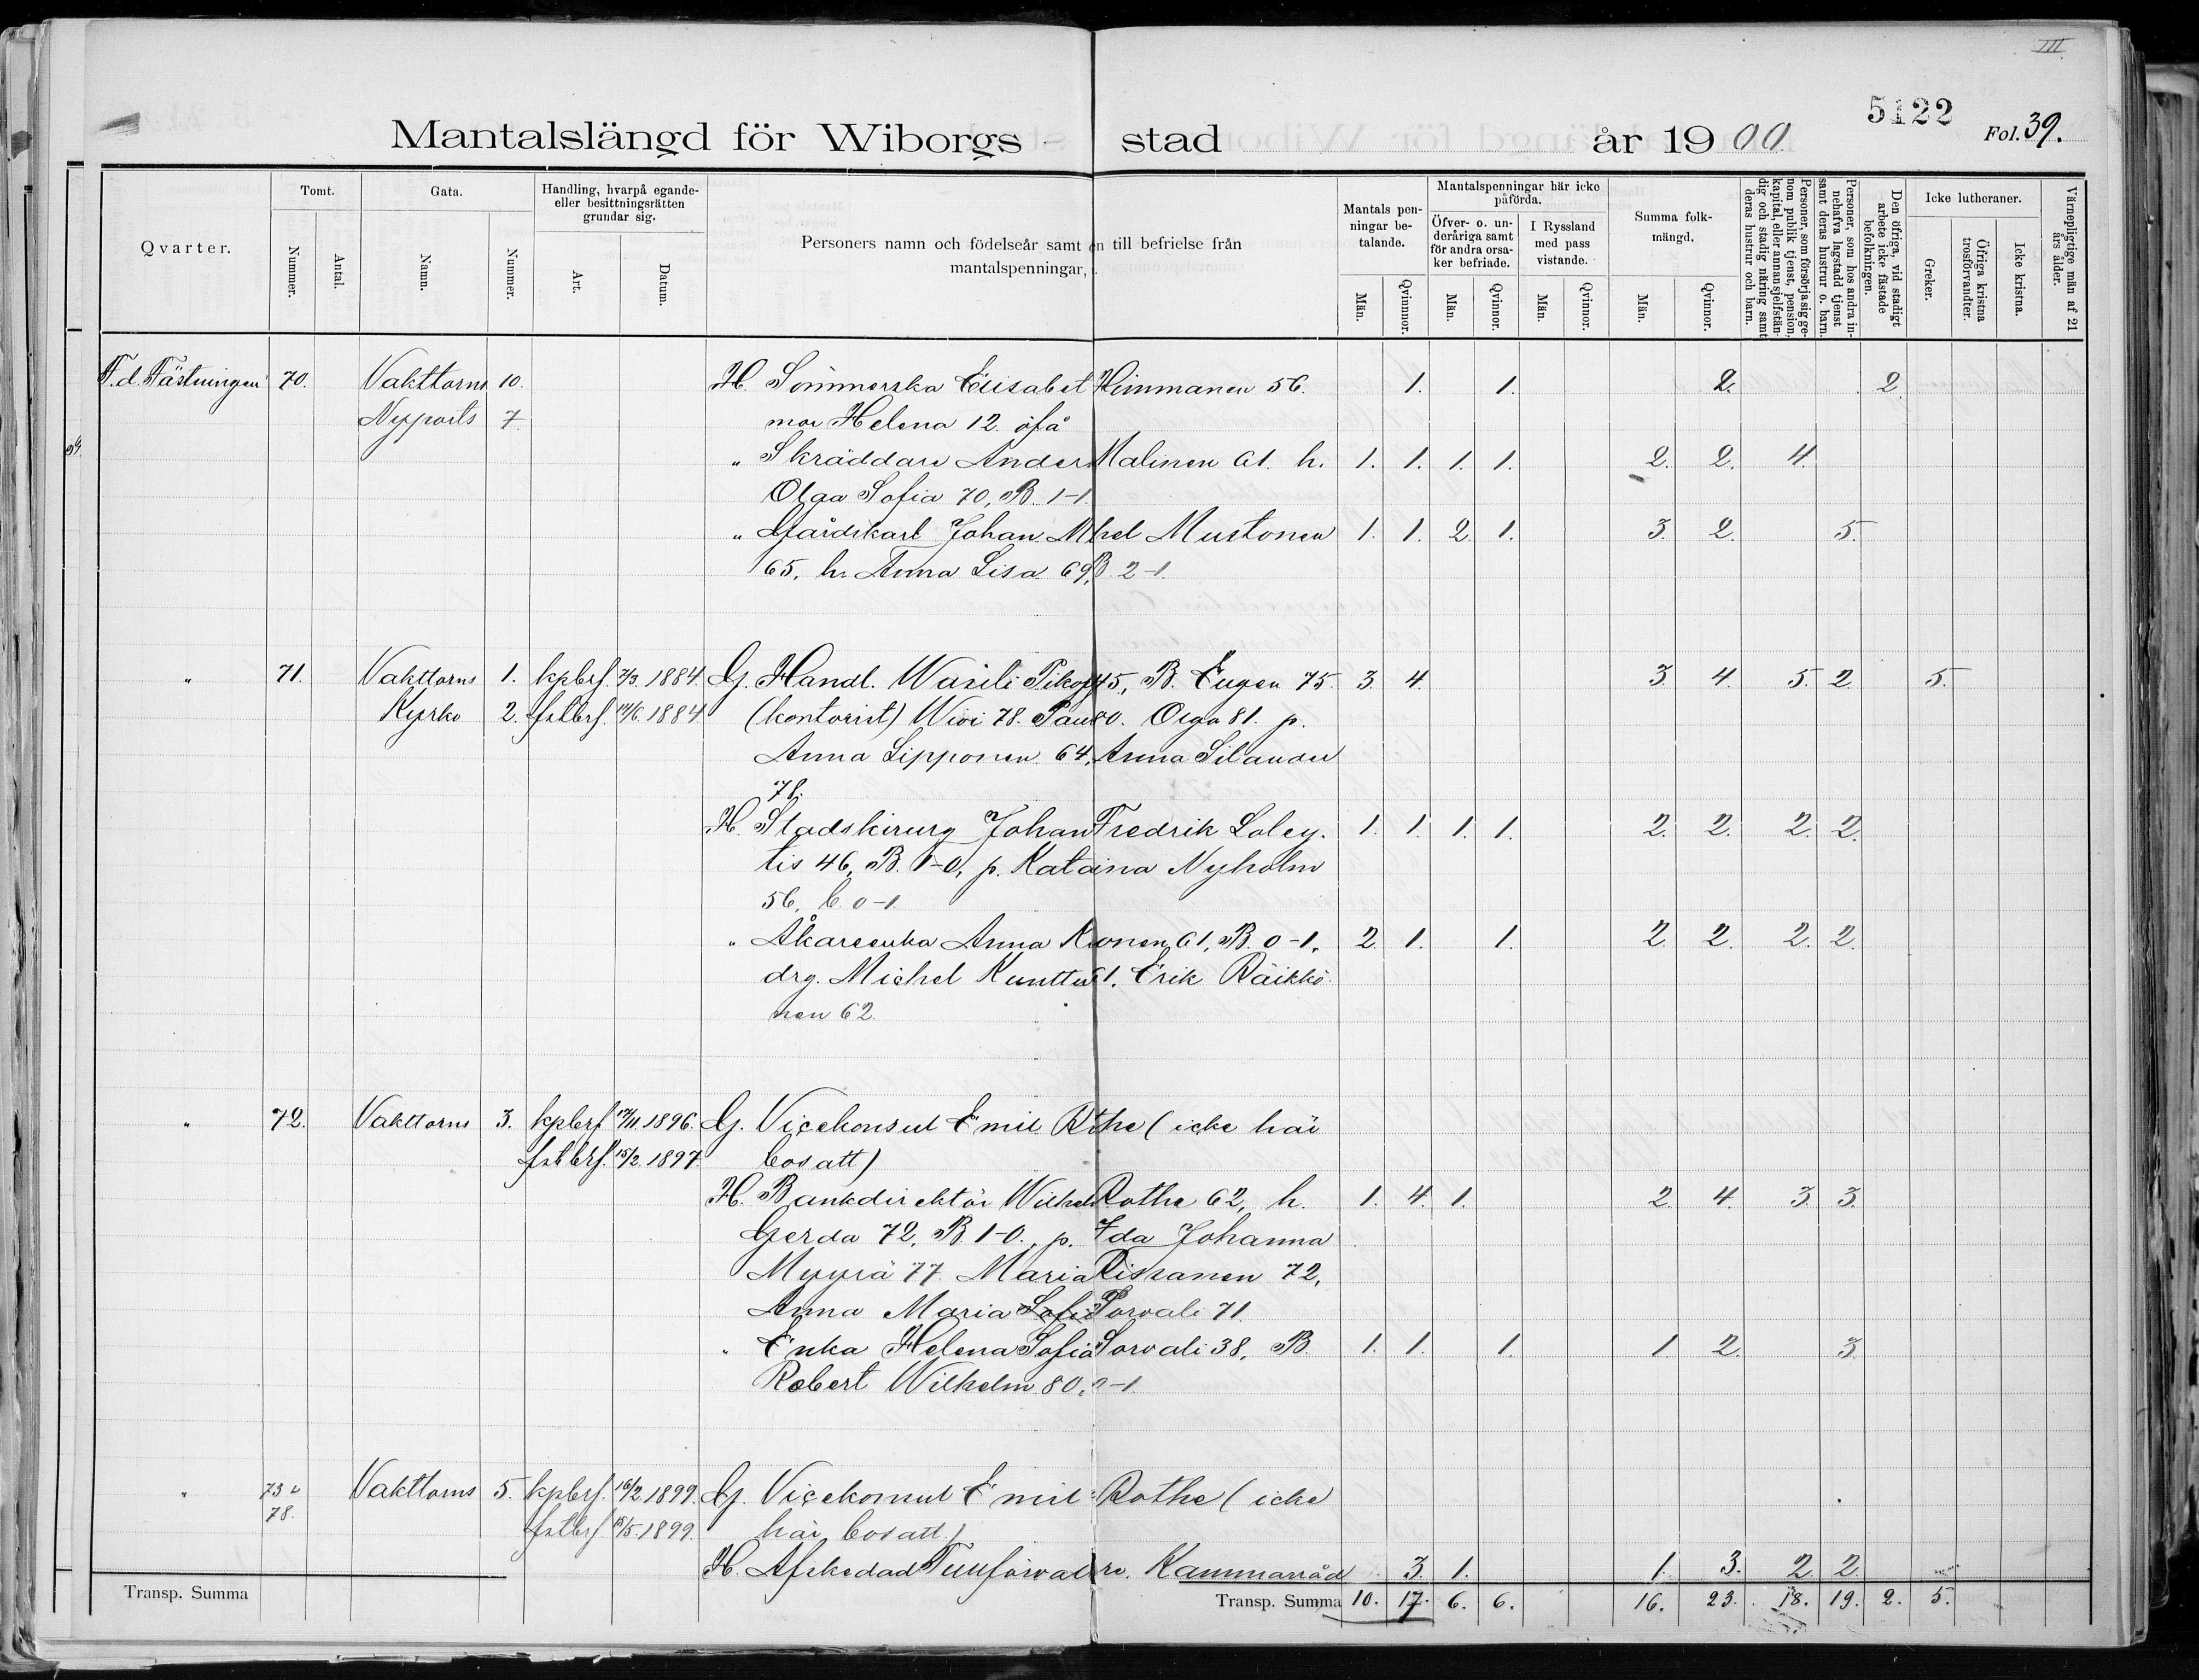 III
5122
Mantalslängd för Wiborgs stad år 1900 Fol. 39.
Qvarter.
Tomt.
Nummer.
Antal.
Gata.
Namn.
Nummer.
Handling, hvarpå egande- eller besittningsrätten grundar sig.
Art.
Datum.
Personers namn och födelseår samt en till befrielse från
mantalspenningar,
Mantals penningar betalande.
Män.
Qvinnor.
Mantalspenningar här icke påförda.
Öfver- o. underåriga samt för andra orsaker befriade.
Män.
Qvinnor.
I Ryssland med pass vistande.
Män.
Qvinnor.
Summa folkmängd.
Män.
Qvinnor.
Personer, som försörja sig genom publik tjenst, pension, kapital, eller annan sjelfständig och stadig näring samt deras hustrur och barn.
Personer, som hos andra innehafva lagstadd tjenst samt deras hustrur o. barn.
Den öfriga, vid stadigt arbete icke fästade befolkningen.
Icke lutheraner.
Greker.
Öfriga kristna trosförvandter.
Icke kristna.
Värnepligtige män af 21 års ålder.
F.d. Fästningen 70. Vakttorns 10. H. Sömmerska Elisabet Himmanen 56. 1. 1. 2. 2.
Nyports 7. mor Helena 12. öfå
" Skräddare Anders Malinen 61. h. 1. 1. 1. 1. 2. 2. 4.
Olga Sofia 70, B. 1-1.
" Gårdskarl Johan Mhel Mustonen 1. 1. 2. 1. 3. 2. 5.
65, h. Anna Lisa 69, B. 2-1.
" 71. Vakttorns 1. kpbrf. 7/3. 1884. G. Handl. Wasili Pikoff 45, B. Eugen 75. 3. 4. 3. 4. 5. 2. 5.
Kyrko 2. fstbrf. 14/6. 1884. (kontorist) Wivi 78. Paul 80. Olga 81. p.
Anna Lipponen 64, Anna Silander
78.
H. Stadskirurg Johan Fredrik Soley- 1. 1. 1. 1. 2. 2. 2. 2.
tis 46, B. 1-0, p. Kataina Nyholm
56, b. 0-1.
" Åkareenka Anna Kononen 61, B. 0-1, 2. 1. 1. 2. 2. 2. 2.
drg. Michel Kunttu 61. Erik Räikkö-
nen 62.
" 72. Vakttorns 3. kpbrf. 17/11 1896. G. Vicekonsul Emil Rothe (icke här
fstbrf. 15/2. 1897. bosatt)
H. Bankdirektör Wilhelm Rothe 62, h. 1. 4. 1. 2. 4. 3. 3.
Gerda 72, B. 1-0., p. Ida Johanna
Myyrä 77. Maria Rissanen 72,
Anna Maria Sofia Sorvali 71.
" Enka Helena Sofia Sorvali 38, B. 1. 1. 1. 1. 2. 3.
Robert Wilhelm 80, 0-1.
" 73 o Vakttorns 5. kpbrf. 16/2. 1899. G. Vicekonsul Emil Rothe (icke
78. fstbrf. 15/5. 1899. här bosatt.)
H. Afskedad Tullförvaltare. Kammarråd 3. 1. 1. 3. 2. 2.
Transp. Summa Transp. Summa 10. 17. 6. 6. 16. 23. 18. 19. 2. 5.